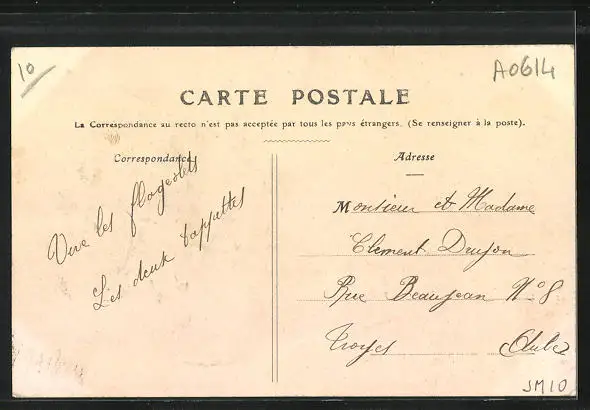 10
A0614
CARTE POSTALE
La Correspondance au recto n'est pas acceptée par tous les pays étrangers. (Se renseigner à la poste).
Correspondance
Vive les flageolets
Les deux tappettes
Adresse
Monsieur et Madame
Clement Drujon
Rue Beaujean N° 8
Troyes Aube
JM10